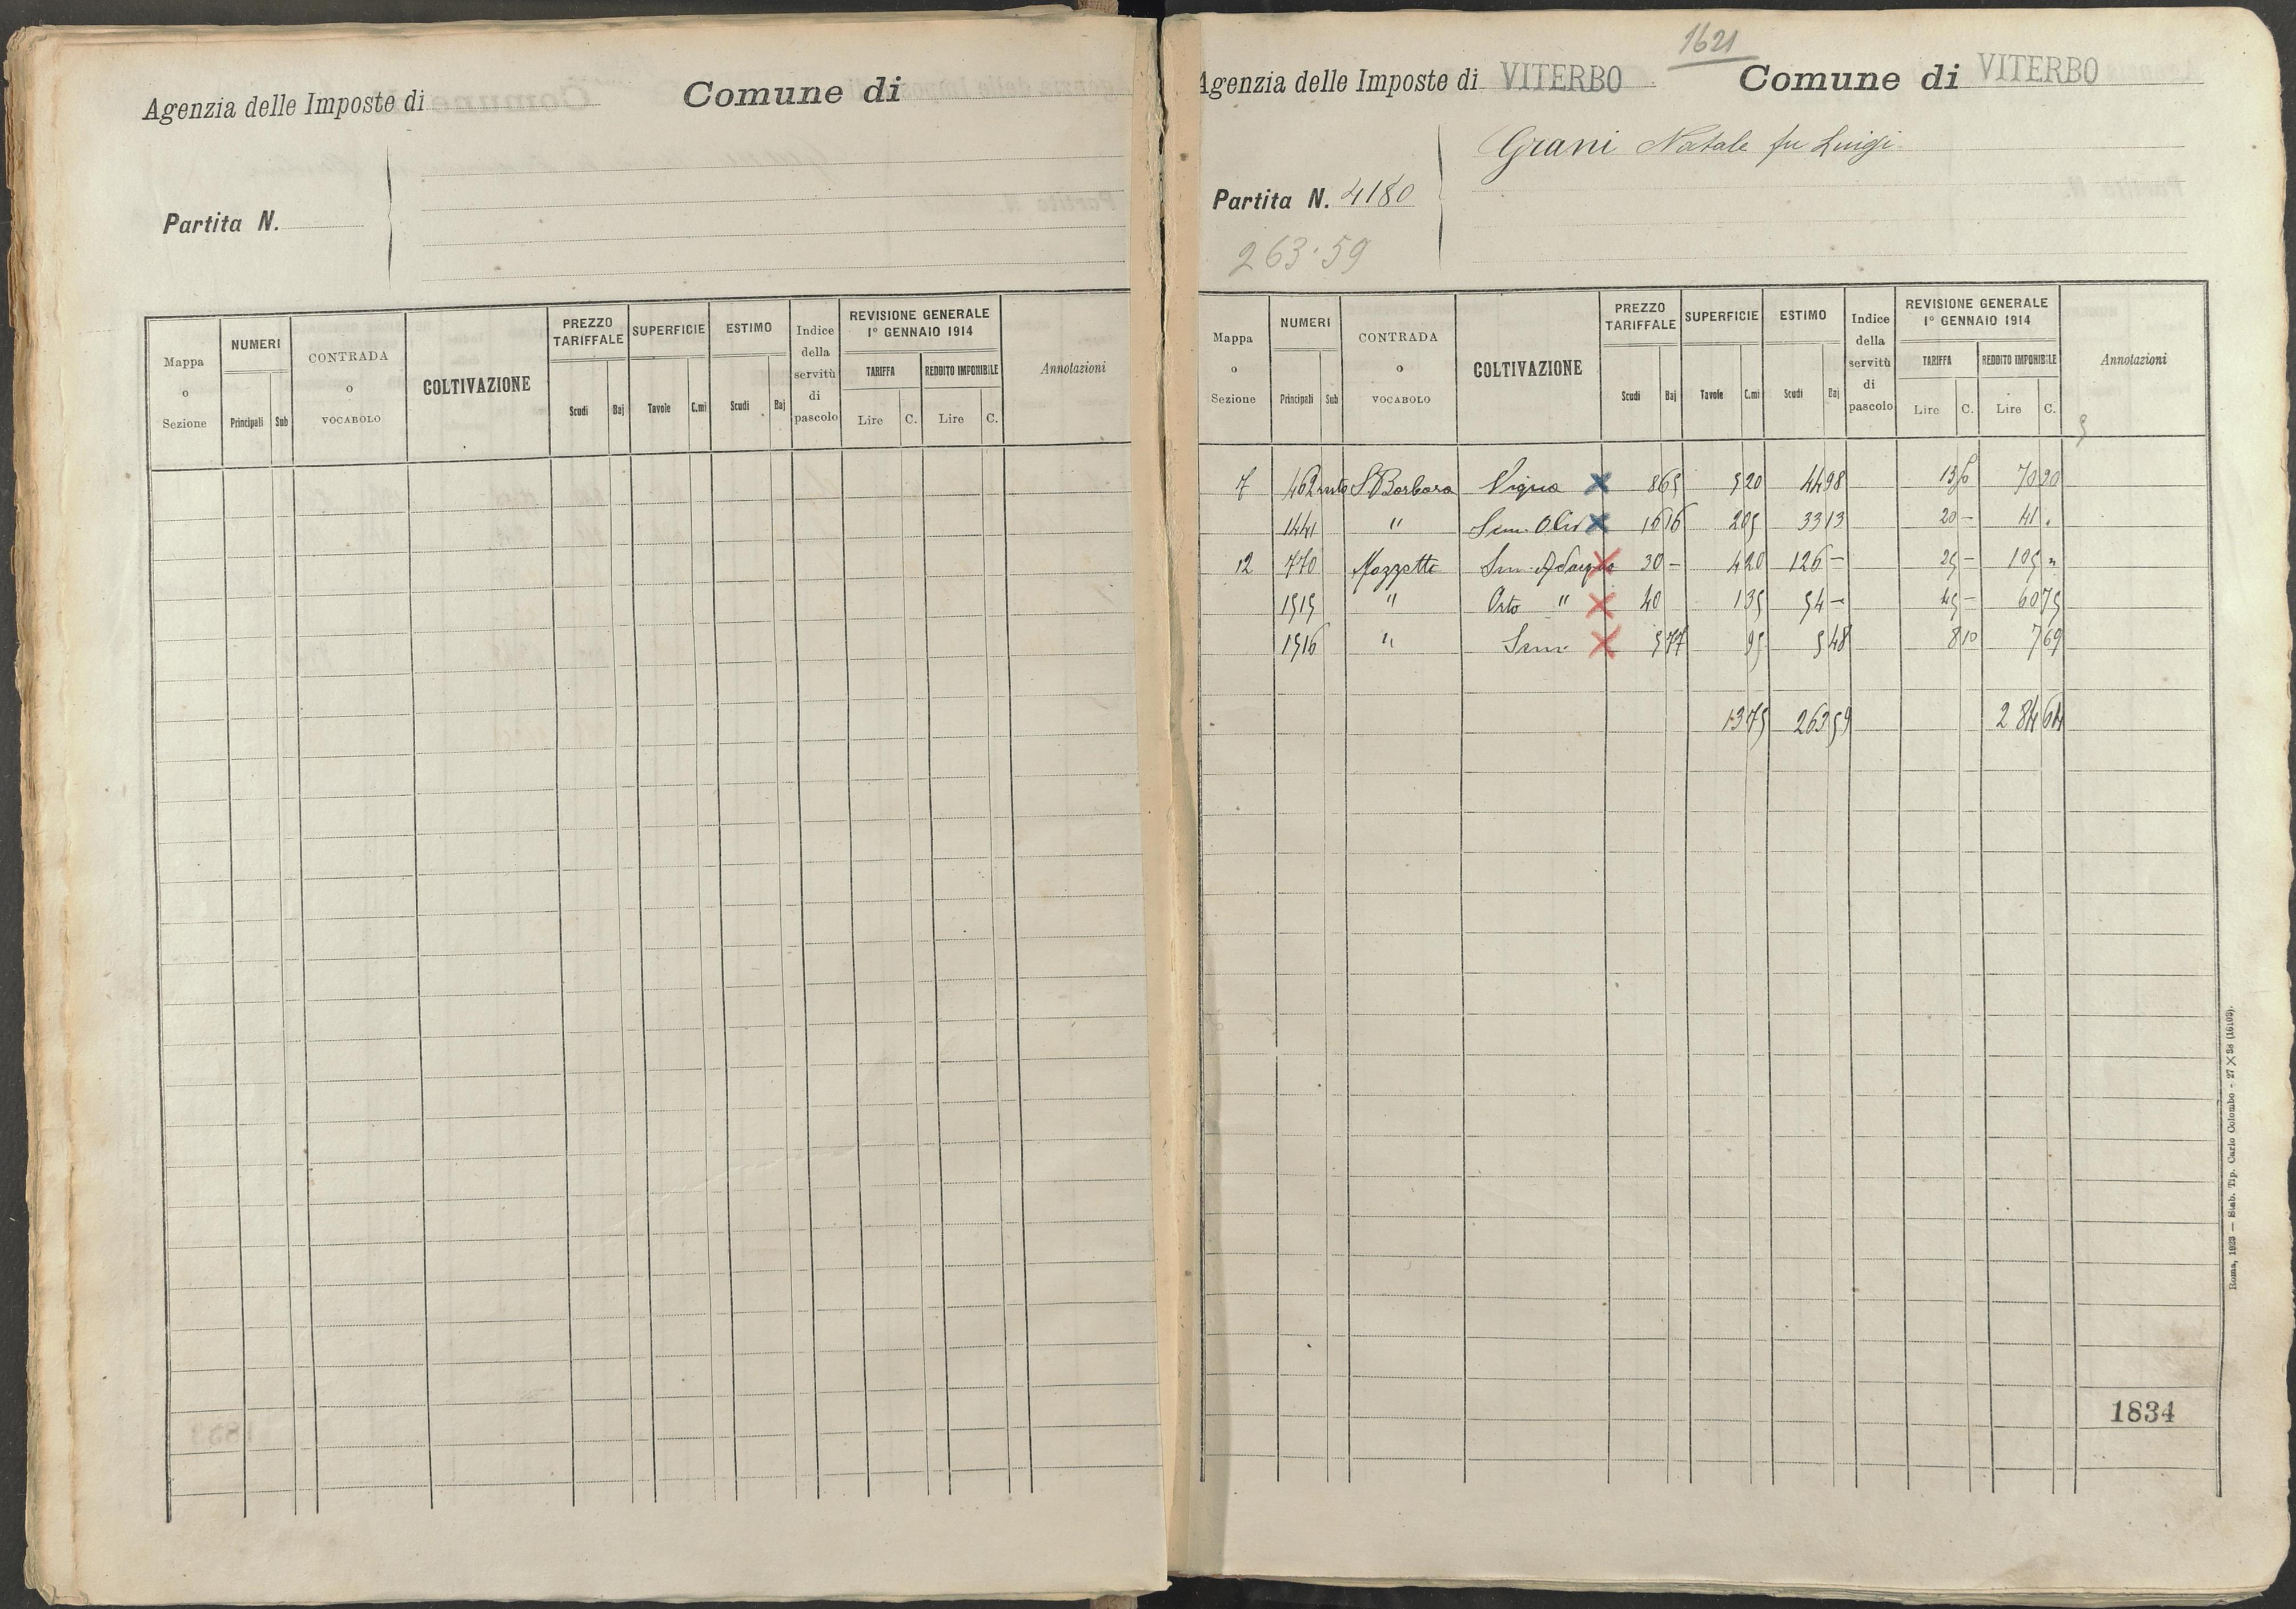 Agenzia delle Imposte di Comune di
Partita N.
Mappa o Sezione NUMERI Principali Sub CONTRADA o VOCABOLO COLTIVAZIONE PREZZO TARIFFALE Scudi Baj SUPERFICIE Tavole C.mi ESTIMO Scudi Baj Indice della servitù di pascolo REVISIONE GENERALE 1° GENNAIO 1914 TARIFFA Lire C. REDDITO IMPONIBILE Lire C. Annotazioni
1621
Agenzia delle Imposte di VITERBO Comune di VITERBO
Grani Natale fu Luigi
Partita N. 4180
263.59
Mappa o Sezione NUMERI Principali Sub CONTRADA o VOCABOLO COLTIVAZIONE PREZZO TARIFFALE Scudi Baj SUPERFICIE Tavole C.mi ESTIMO Scudi Baj Indice della servitù di pascolo REVISIONE GENERALE 1° GENNAIO 1914 TARIFFA Lire C. REDDITO IMPONIBILE Lire C. Annotazioni
7 462 S. Barbara Vigna X 8 65 5 20 44 98 13 50 70 20
1441 " Sem. Oliv X 16 16 2 05 33 13 20 - 41 .
12 770 Mazzetta Sem. X 30 - 4 20 126 - 25 - 105 "
1515 " Orto " X 40 1 35 54 - 45 - 60 75
1516 " Sem X 5 77 95 5 48 8 10 7 69
13 75 263 59 284 64
1834
Roma, 1923 — Stab. Tip. Carlo Colombo - 27 X 38 (16103).